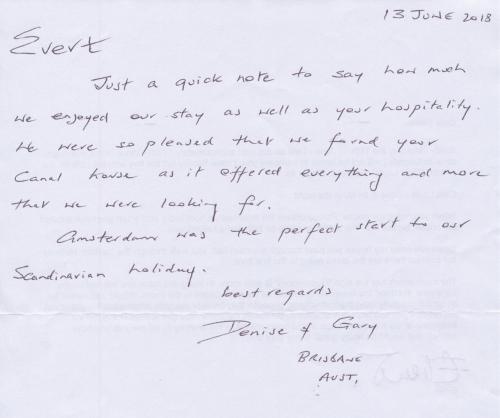 13 June 2018
Evert
Just a quick note to say how much
we enjoyed our stay as well as your hospitality.
We were so pleased that we found your
Canal house as it offered everything and more
that we were looking for.
Amsterdam was the perfect start to our
Scandinavian holiday.
best regards
Denise & Gary
BRISBANE
AUST,